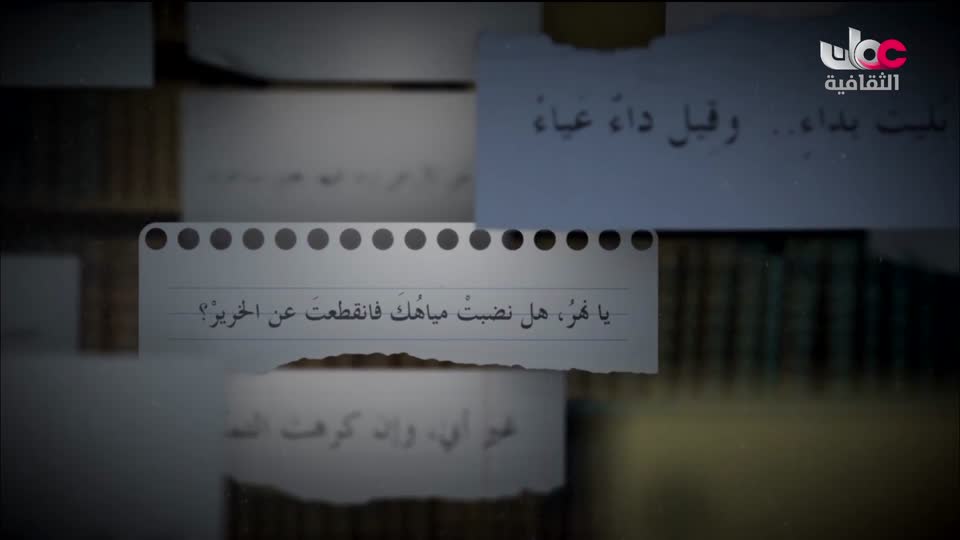 عمان
الثقافية
بداءٍ.. وقيل داءٌ عَياءُ
يا نهرُ، هل نضبتْ مياهُكَ فانقطعتَ عن الخريرْ؟
غير أني، وإن كرهت